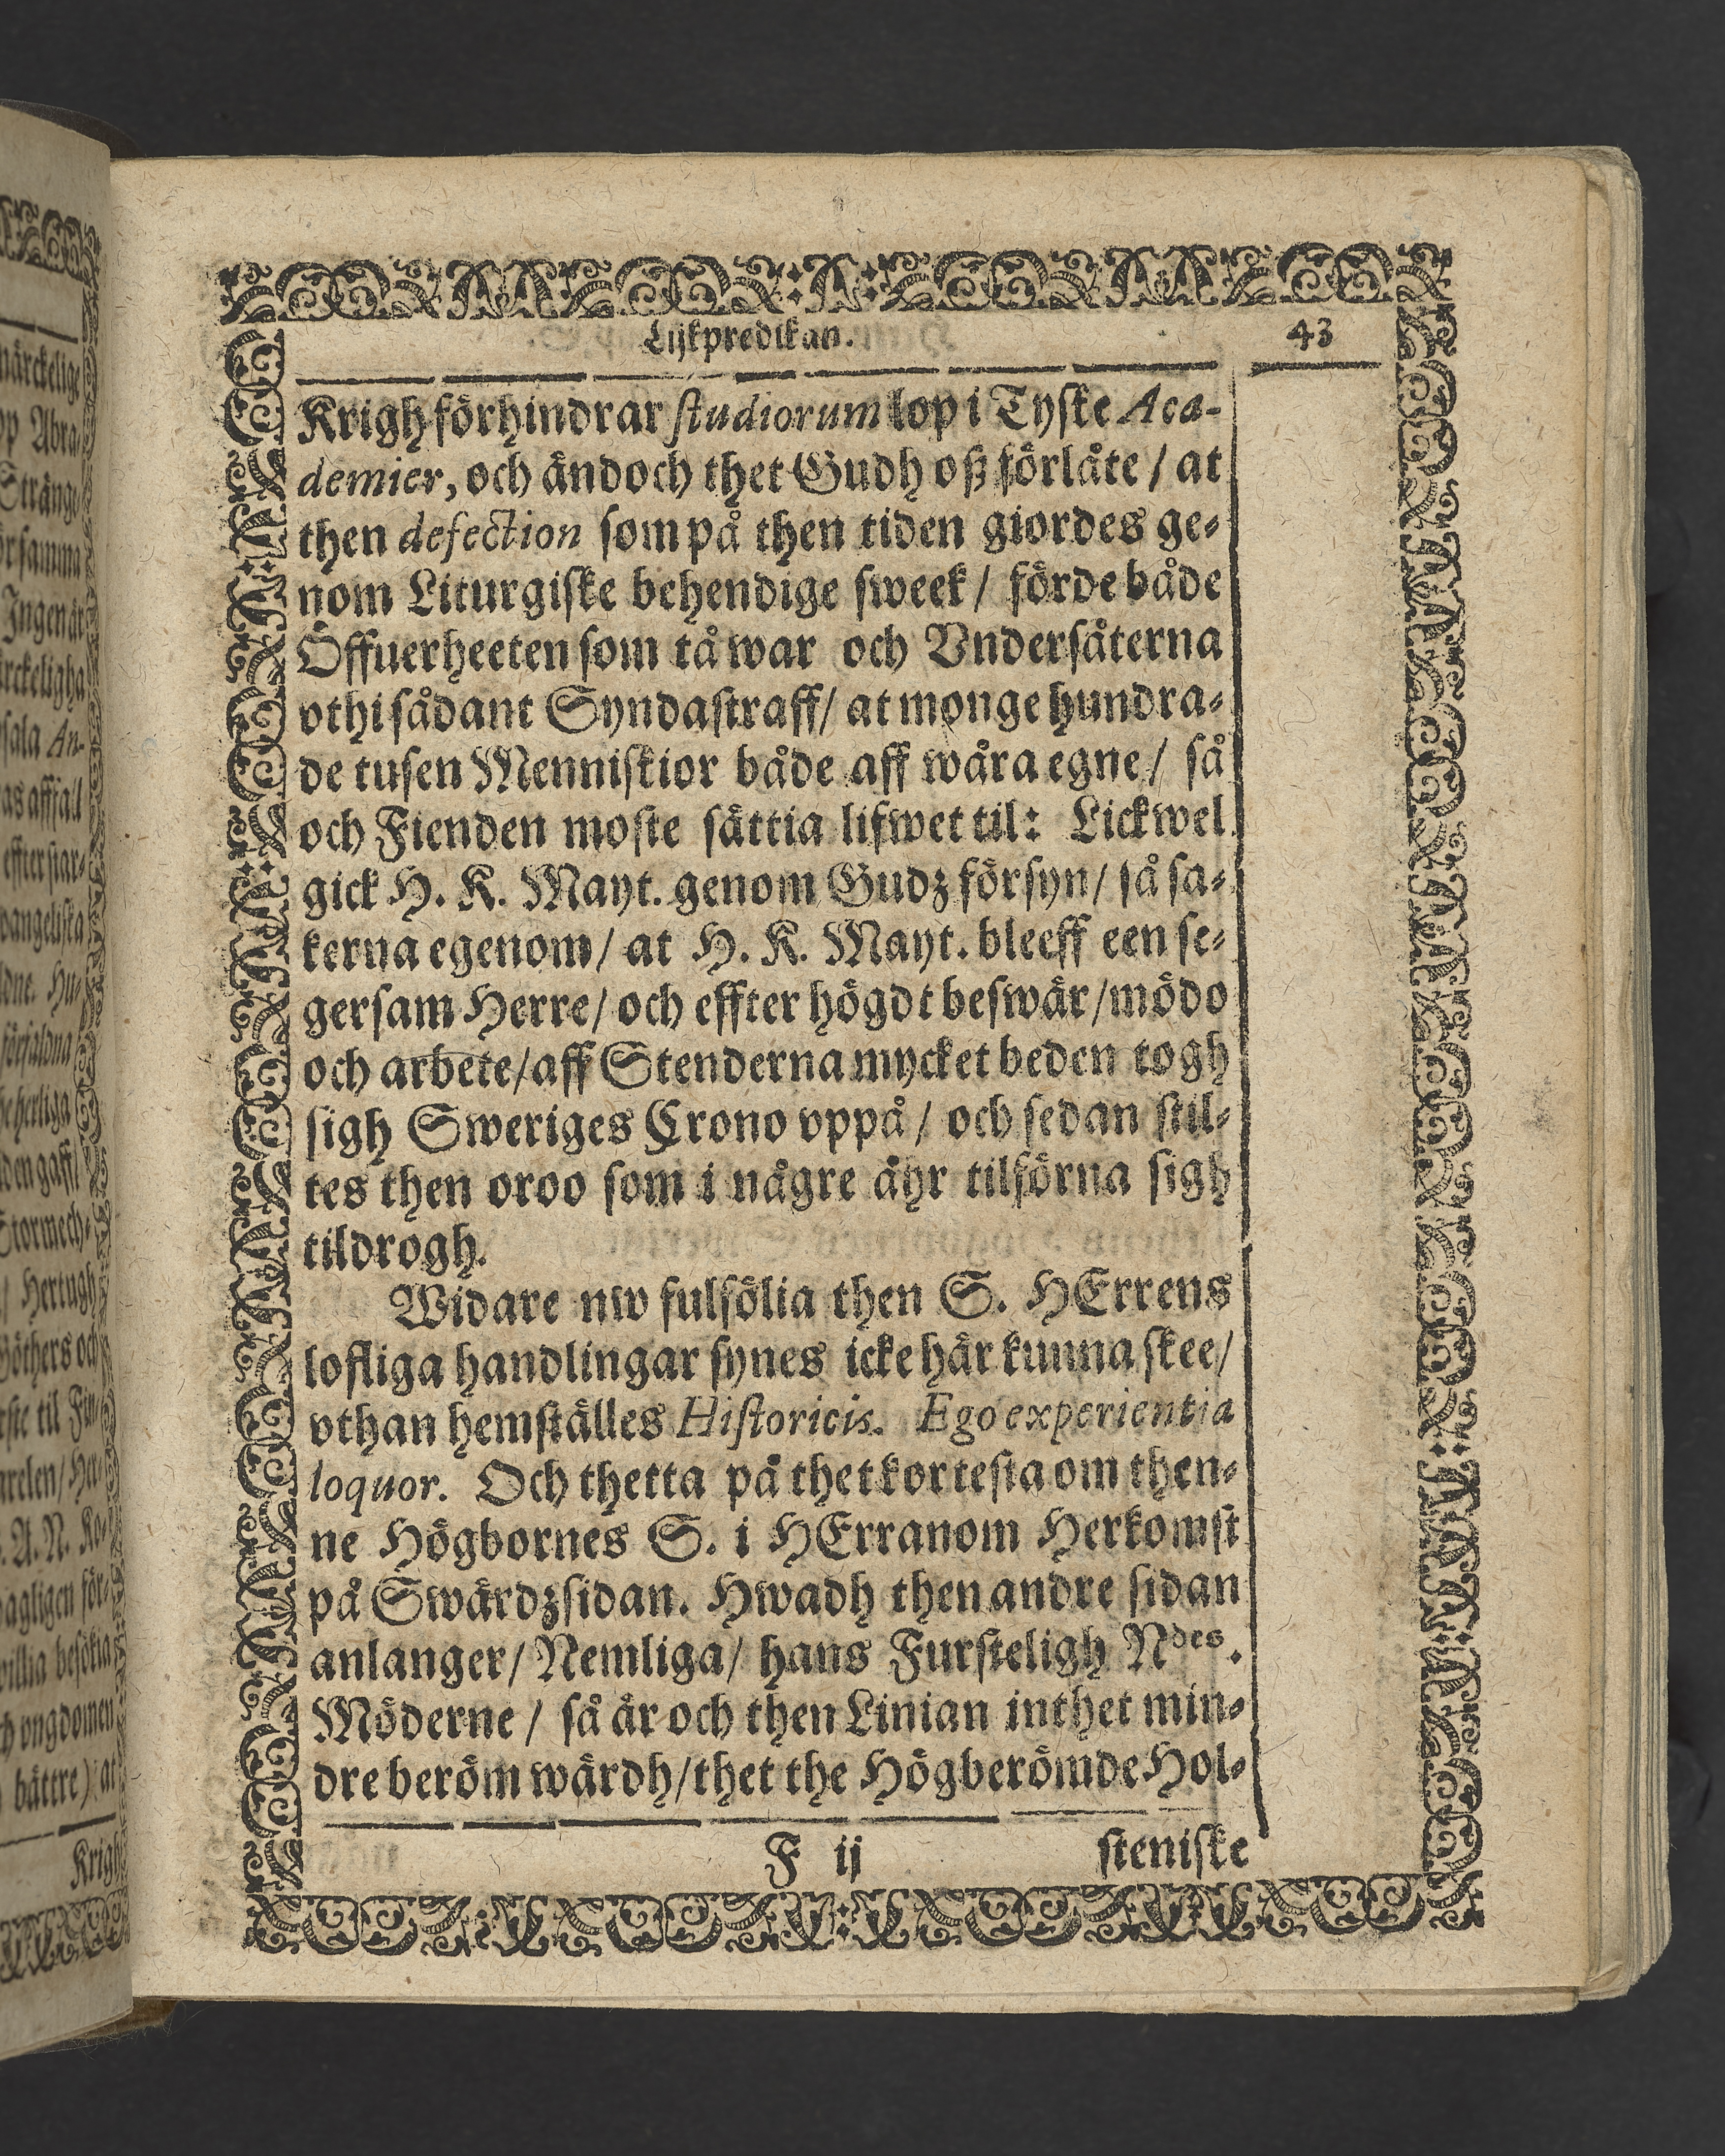 Lijkpredikan. 43
Krigh förhindrar studiorum lop i Tyske Aca-
demier, och ändoch thet Gudh oß förlåte / at
then defection som på then tiden giordes ge-
nom Liturgiske behendige sweek / förde både
Öffuerheeten som tå war och Vndersåterna
vthi sådant Syndastraff / at monge hundra-
de tusen Menniskior både aff wåra egne / så
och Fienden moste sättia lifwet til: Lickwel
gick H. K. Mayt. genom Gudz försyn / så sa-
kerna egenom / at H. K. Mayt. bleeff een se-
gersam Herre / och effter högdt beswär / mödo
och arbete / aff Stenderna mycket beden togh
sigh Sweriges Crono vppå / och sedan stil-
tes then oroo som i någre åhr tilförna sigh
tildrogh.
Widare nw fulfölia then S. HErrens
lofliga handlingar synes icke här kunna skee /
vthan hemställes Historicis. Ego experientia
loquor. Och thetta på thet kortesta om then-
ne Högbornes S. i HErranom Herkomst
på Swärdzsidan. Hwadh then andre sidan
anlanger / Nemliga / hans Fursteligh Ndes.
Möderne / så är och then Linian inthet min-
dre beröm wärdh / thet the Högberömde Hol-
F ij steniske